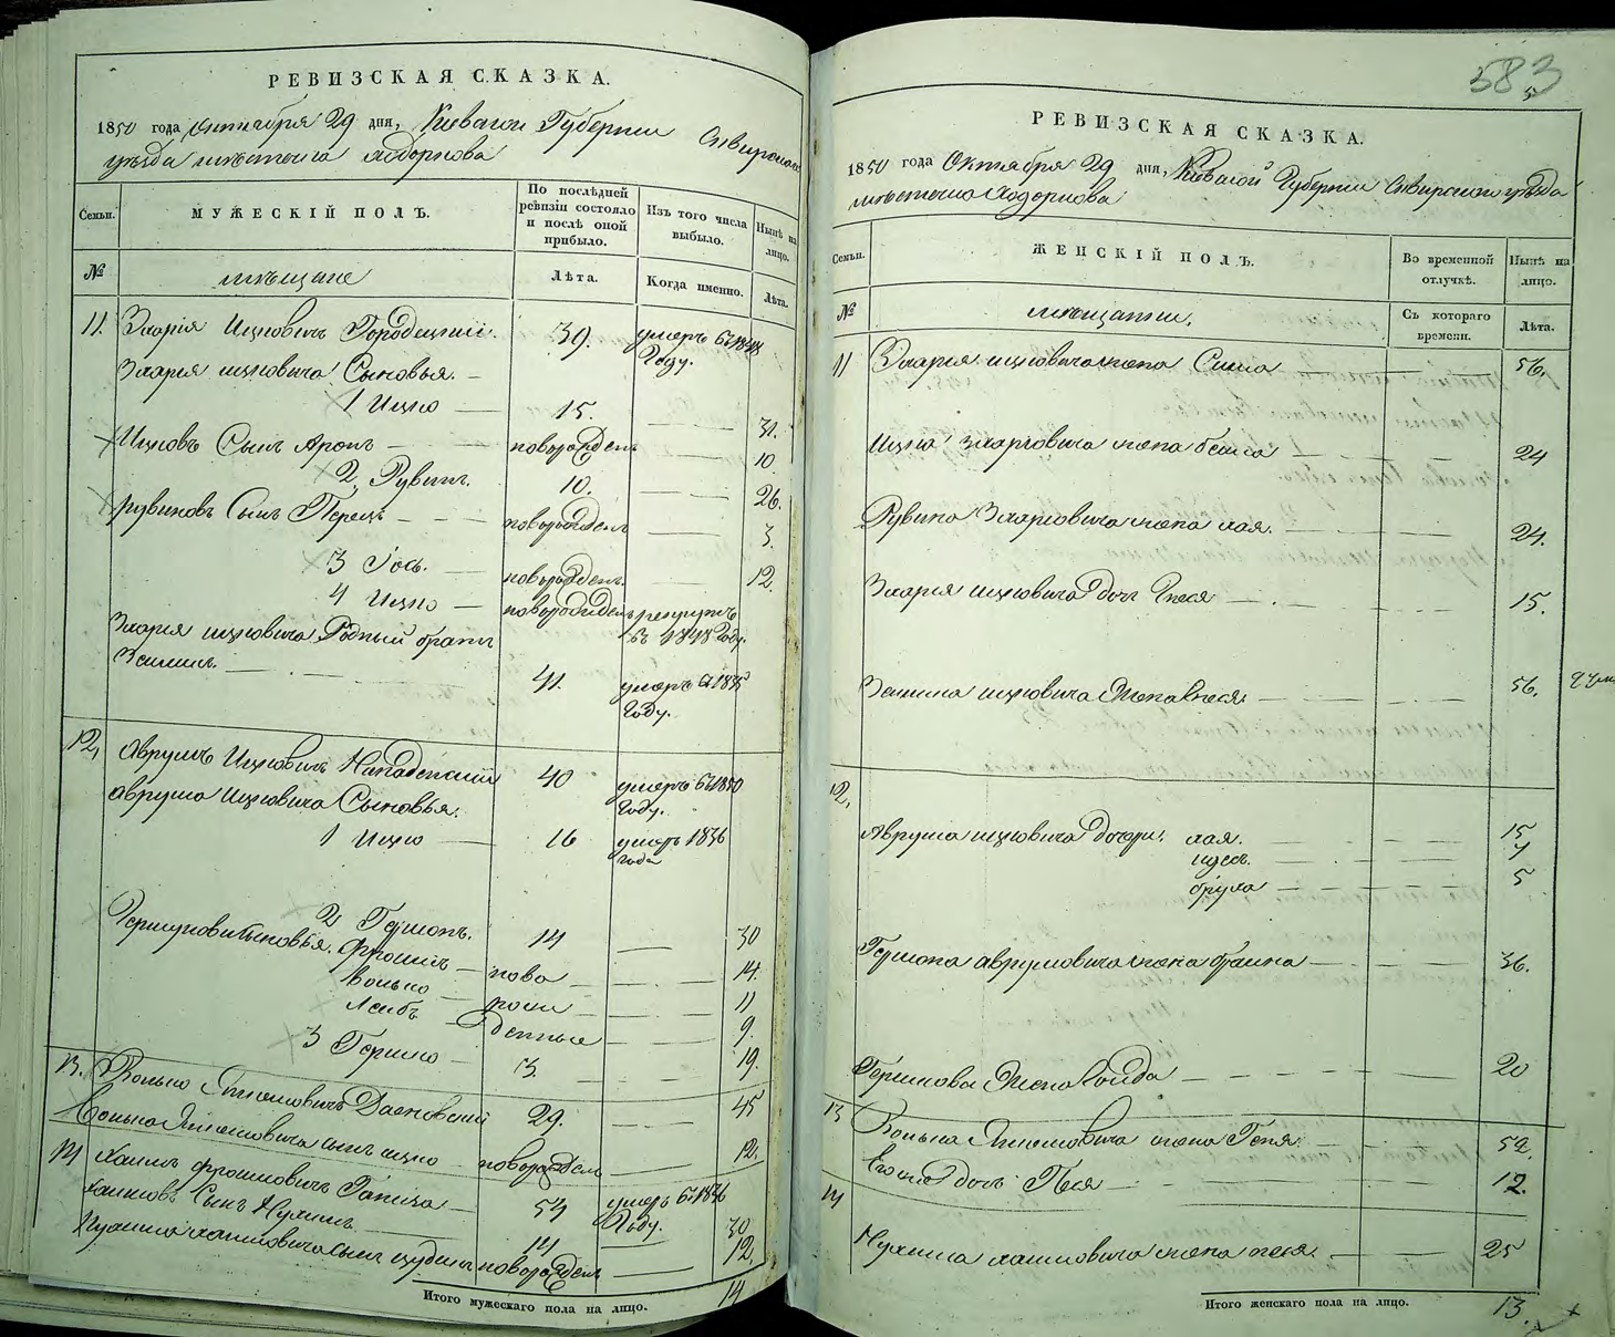 РЕВИЗСКАЯ СКАЗКА.
1850 года Октября 29 дня, Киевской Губернии Сквирского
уезда местечка Ходоркова
Семьи.
МУЖЕСКІЙ ПОЛЪ.
По послѣдней ревизіи состояло и послѣ оной прибыло.
Изъ того числа выбыло.
Нынѣ на лицо.
№
мещане
Лѣта.
Когда именно.
Лѣта.
11. Зхарія Ицковичъ Городецкий. 39. умеръ въ 1848 Году.
Зхария ицковича Сыновья.
1 Ицко 15. 31.
Ицковъ Сынъ Аронъ новорожденъ 10
2, Рувинъ. 10. 26.
Рувиновъ Сынъ Перецъ новорожденъ 3.
3 Іось. новорожденъ. 12.
4 Ицко новорожденъ рекрутъ въ 1848 Году.
Зхария ицковича Родный братъ
Зейликъ. 41. умеръ въ 1835 Году.
12, Аврумъ Ицковичъ 40 умеръ въ 1850 Году.
Аврума Ицковича Сыновья.
1 Ицко 16 умеръ 1836 года
2 Гершонъ. 14 30
Сыновья. Фроимъ ново 14.
Волько рож 11
Лейбъ денные 9.
3 Гершко 3. 19.
13. Волько 29. 45
сынъ ицко новорожденъ 12.
14 Хаимъ Фроимовичъ 54 умеръ въ 1836 Году.
Хаимовъ Сынъ Нухимъ 14 30
Нухима хаимовича сынъ новорожденъ 12.
Итого мужескаго пола на лицо. 14
583
РЕВИЗСКАЯ СКАЗКА.
1850 года Октября 29 дня, Киевской Губернии Сквирского уезда
местечка Ходоркова
Семьи.
ЖЕНСКІЙ ПОЛЪ.
Во временной отлучкѣ.
Нынѣ на лицо.
№
мещанки.
Съ котораго времени.
Лѣта.
11 Зхария ицковича жена Сима 56.
Ицка зхарговича жена бейла 24
Рувина Зхарговича жена хая. 24.
Зхария ицковича дочь 15.
Зейлика ицковича Жена 56.
12.
Аврума ицковича дочери. хая. 15
7
бруха 5
Гершона аврумовича жена брайна 36.
Гершкова Жена 20
13 Волька жена Геня. 52.
его дочь Песя 12.
14
Нухима хаимовича жена песя. 25
Итого женскаго пола на лицо. 13.